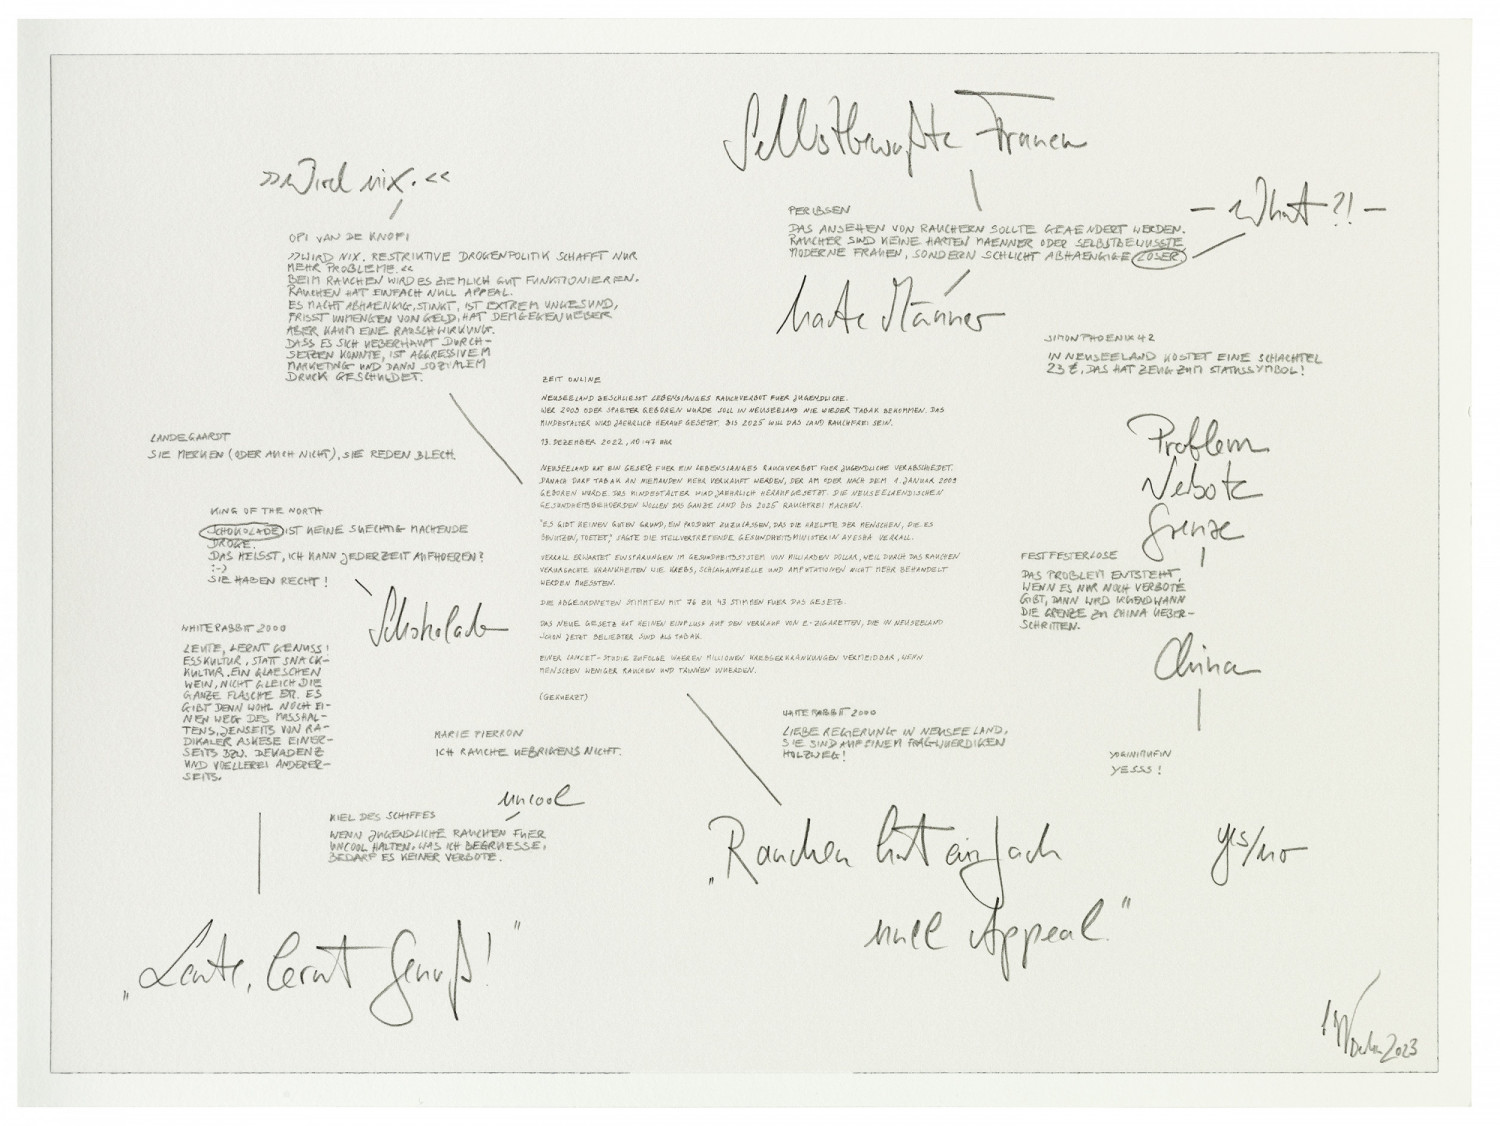 Selbstbewußte Frauen
»Wird nix.«
– What?! –
OPI VAN DE KNOPI
»WIRD NIX. RESTRIKTIVE DROGENPOLITIK SCHAFFT NUR
MEHR PROBLEME.«
BEIM RAUCHEN WIRD ES ZIEMLICH GUT FUNKTIONIEREN.
RAUCHEN HAT EINFACH NULL APPEAL.
ES MACHT ABHAENGIG, STINKT, IST EXTREM UNGESUND,
FRISST UNMENGEN VON GELD, HAT DEMGEGENUEBER
ABER KAUM EINE RAUSCHWIRKUNG.
DASS ES SICH UEBERHAUPT DURCH-
SETZEN KONNTE, IST AGGRESSIVEM
MARKETING UND DANN SOZIALEM
DRUCK GESCHULDET.
PER IBSEN
DAS ANSEHEN VON RAUCHERN SOLLTE GEAENDERT WERDEN.
RAUCHER SIND KEINE HARTEN MAENNER ODER SELBSTBEWUSSTE
MODERNE FRAUEN, SONDERN SCHLICHT ABHAENGIGE LOSER
harte Männer
SIMON PHOENIX 42
IN NEUSEELAND KOSTET EINE SCHACHTEL
23 €, DAS HAT ZEUG ZUM STATUSSYMBOL!
LANDEGAARDT
SIE MERKEN (ODER AUCH NICHT), SIE REDEN BLECH.
ZEIT ONLINE
NEUSEELAND BESCHLIESST LEBENSLANGES RAUCHVERBOT FUER JUGENDLICHE.
WER 2009 ODER SPAETER GEBOREN WURDE SOLL IN NEUSEELAND NIE WIEDER TABAK BEKOMMEN. DAS
MINDESTALTER WIRD JAEHRLICH HERAUF GESETZT. BIS 2025 WILL DAS LAND RAUCHFREI SEIN.
13. DEZEMBER 2022, 10:47 UHR
NEUSEELAND HAT EIN GESETZ FUER EIN LEBENSLANGES RAUCHVERBOT FUER JUGENDLICHE VERABSCHIEDET.
DANACH DARF TABAK AN NIEMANDEN MEHR VERKAUFT WERDEN, DER AM ODER NACH DEM 1. JANUAR 2009
GEBOREN WURDE. DAS MINDESTALTER WIRD JAEHRLICH HERAUFGESETZT. DIE NEUSEELAENDISCHEN
GESUNDHEITSBEHOERDEN WOLLEN DAS GANZE LAND BIS 2025 RAUCHFREI MACHEN.
"ES GIBT KEINEN GUTEN GRUND, EIN PRODUKT ZUZULASSEN, DAS DIE HAELFTE DER MENSCHEN, DIE ES
BENUTZEN, TOETET", SAGTE DIE STELLVERTRETENDE GESUNDHEITSMINISTERIN AYESHA VERRALL.
VERRALL ERWARTET EINSPARUNGEN IM GESUNDHEITSSYSTEM VON MILLIARDEN DOLLAR, WEIL DURCH DAS RAUCHEN
VERURSACHTE KRANKHEITEN WIE KREBS, SCHLAGANFAELLE UND AMPUTATIONEN NICHT MEHR BEHANDELT
WERDEN MUESSTEN.
DIE ABGEORDNETEN STIMMTEN MIT 76 ZU 43 STIMMEN FUER DAS GESETZ.
DAS NEUE GESETZ HAT KEINEN EINFLUSS AUF DEN VERKAUF VON E-ZIGARETTEN, DIE IN NEUSEELAND
SCHON JETZT BELIEBTER SIND ALS TABAK.
EINER LANCET-STUDIE ZUFOLGE WAEREN MILLIONEN KREBSERKRANKUNGEN VERMEIDBAR, WENN
MENSCHEN WENIGER RAUCHEN UND TRINKEN WUERDEN.
(GEKUERZT)
KING OF THE NORTH
SCHOKOLADE IST KEINE SUECHTIG MACHENDE
DROGE.
DAS HEISST, ICH KANN JEDERZEIT AUFHOEREN?
:-)
SIE HABEN RECHT!
Schokolade
Problem
Verbote
Grenze
FESTFESTERLOSE
DAS PROBLEM ENTSTEHT,
WENN ES NUR NOCH VERBOTE
GIBT, DANN WIRD IRGENDWANN
DIE GRENZE ZU CHINA UEBER-
SCHRITTEN.
China
WHITERABBIT 2000
LEUTE, LERNT GENUSS!
ESSKULTUR, STATT SNACK-
KULTUR. EIN GLAESCHEN
WEIN, NICHT GLEICH DIE
GANZE FLASCHE ETC. ES
GIBT DENN WOHL NOCH EI-
NEN WEG DES MASSHAL-
TENS, JENSEITS VON RA-
DIKALER ASKESE EINER-
SEITS BZW. DEKADENZ
UND VOELLEREI ANDERER-
SEITS.
MARIE PIERRON
ICH RAUCHE UEBRIGENS NICHT.
WHITERABBIT 2000
LIEBE REGIERUNG IN NEUSEELAND,
SIE SIND AUF EINEM FRAGWUERDIGEN
HOLZWEG!
YESSS!
uncool
KIEL DES SCHIFFES
WENN JUGENDLICHE RAUCHEN FUER
UNCOOL HALTEN, WAS ICH BEGRUESSE,
BEDARF ES KEINER VERBOTE.
„Rauchen hat einfach
null Appeal."
yes/no
„Leute, lernt Genuß!"
2023